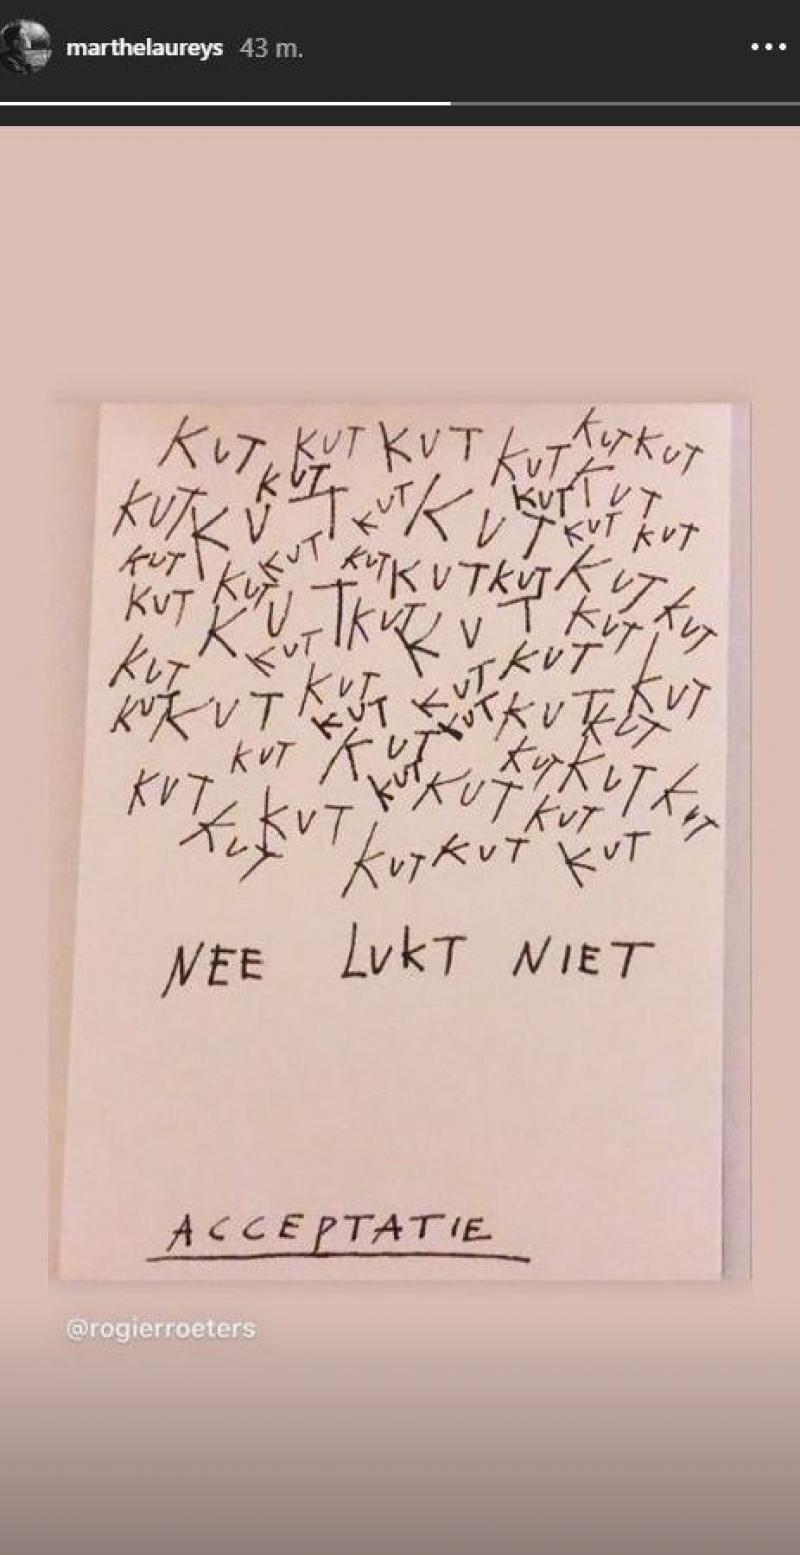 marthelaureys 43 m.
KUT KUT KUT KUT KUT KUT
KUT KUT KUT KUT KUT KUT KUT
KUT KUT KUT
KUT KUT KUT KUT KUT KUT KUT
KUT KUT KUT KUT KUT KUT
KUT KUT KUT KUT KUT
KUT KUT KUT KUT KUT KUT KUT
KUT KUT KUT KUT
KUT KUT KUT KUT KUT
KUT KUT KUT KUT KUT
NEE LUKT NIET
ACCEPTATIE
@rogierroeters